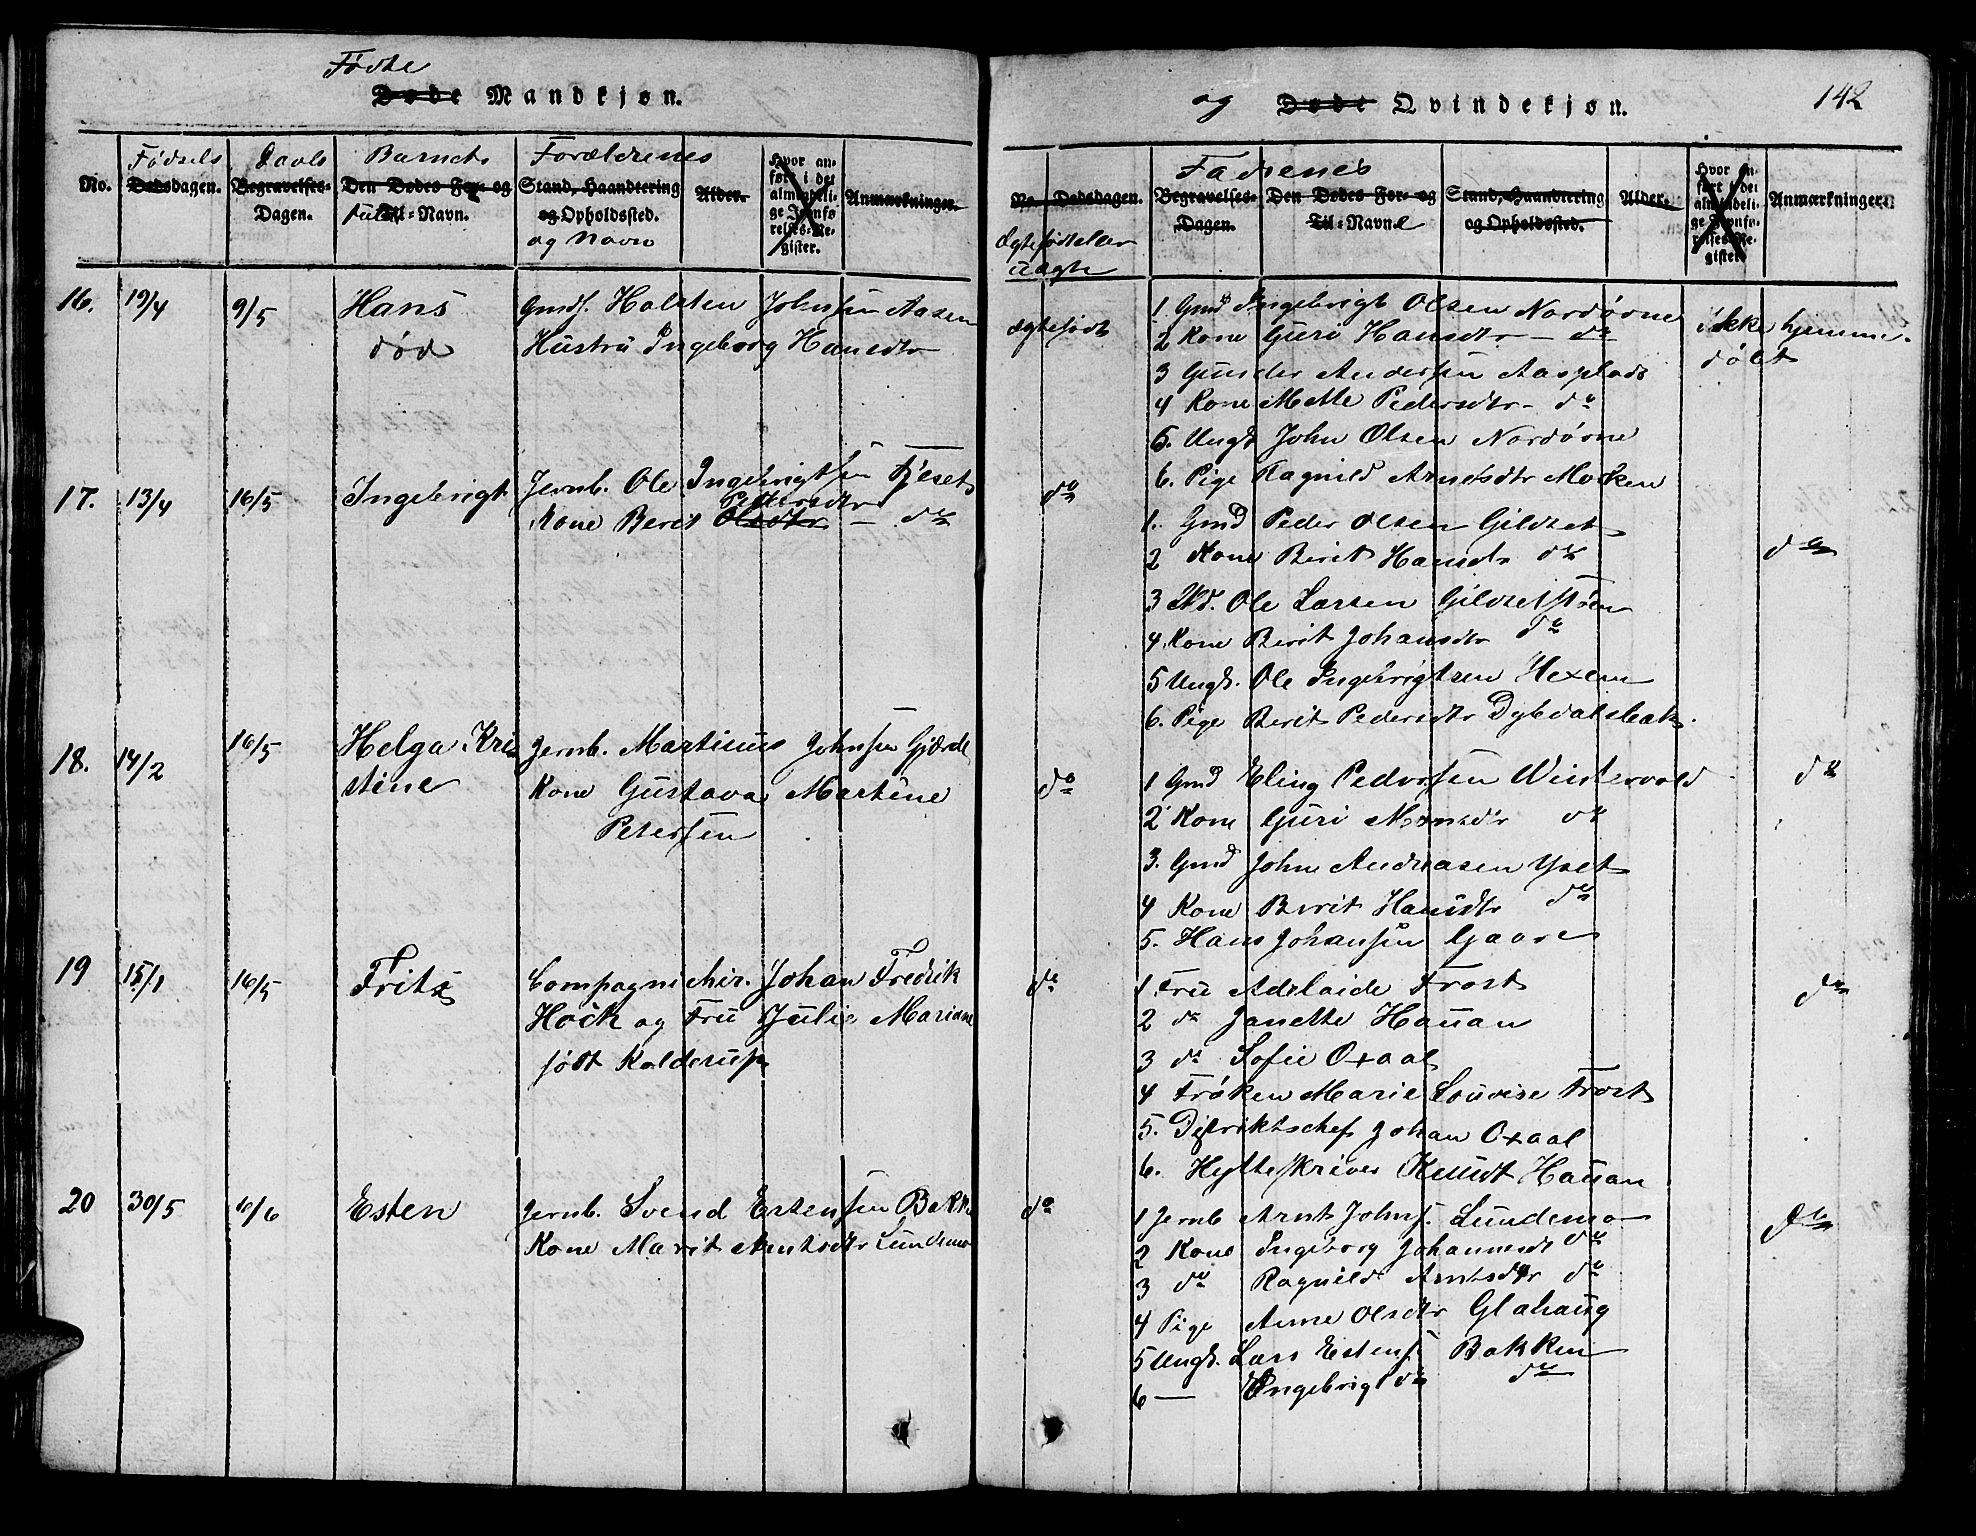 Fødte
Døde Mandkjøn.
No.
Fødsels
Dødsdagen.
Daabs
Begravelses-
Dagen.
Barnets
Den Dødes For- og
fulde Til-Navn.
Forældrenes
Stand, Haandtering
og Opholdssted.
og Navn
Alder.
Hvor an-
ført i det
almindeli-
ge Jevnfø-
relses-Re-
gister.
Anmærkninger.
16. 19/4 9/5 Hans Gmd. Holsten Johnsen Aasen
død Hustru Ingeborg Hansdtr
17. 13/4 16/5 Ingebrigt Jernb. Ole Ingebrigtsen Fjeset
Pettersdtr
Kone Berit Olsdtr — do
18. 14/2 16/5 Helga Kri- Jernb. Martinus Johnsen Gjærde
stine Kone Gustava Martine
Petersen
19 15/1 16/5 Fritz Compagnichir. Johan Fredrik
Höck og Fru Julie Mariane
født Kalderup
20 30/5 6/6 Esten Jernb. Svend Estensen Bakk
Kone Marit Arntsdtr Lundemo
og Døde Qvindekjøn.
142
No. Dødsdagen.
Ægtefødt eller
uægte
Fadrenes
Begravelses-
Dagen.
Den Dødes For- og
Til-Navne
Stand, Haandtering
og Opholdssted.
Alder.
Hvor an-
ført i det
almindeli-
ge Jevnfø-
relses-Re-
gister.
Anmærkninger.
ægtefødt 1 Gmd Ingebrigt Olsen Nordøvne ikke hjemme-
2 Kone Guri Hansdtr — do døbt
3 Gunder Andersen Aasplads
4 Kone Mette Pedersdtr — do
5. Ungk. John Olsen Nordøvne
6. Pige Ragnild Arnesdtr Moken
do 1. Gmd Peder Olsen Gildset do
2 Kone Berit Hansdtr do
3 Ole Larsen Gildsetstøen
4. Kone Berit Johansdtr do
5 Ungk. Ole Ingebrigtsen Hexem
6. Pige Berit Pedersdtr Dybdalsbak.
do 1 Gmd Eling Pedersen Wintervold do
2 Kone Guri Monsdtr do
3. Gmd John Andreasen Yset
4 Kone Berit Hansdtr do
5. Hans Johansen Gaare
do 1 Fru Adelaide Frost do
2 do Janette Hauan
3 do Sofie Oxaal
4 Frøken Marie Louise Frost
5. Distriktschef Johan Oxaal
6. Hytteskriver Knudt Hauan
do 1 Jernb Arnt Johns. Lundemo do
2 Kone Ingeborg Johannesdt do
3 do Ragnild Arntsdtr do
4 Pige Anne Olsdtr Glahaug
5 Ungk. Lars Estens. Bakken
6 — Engebrigt do do